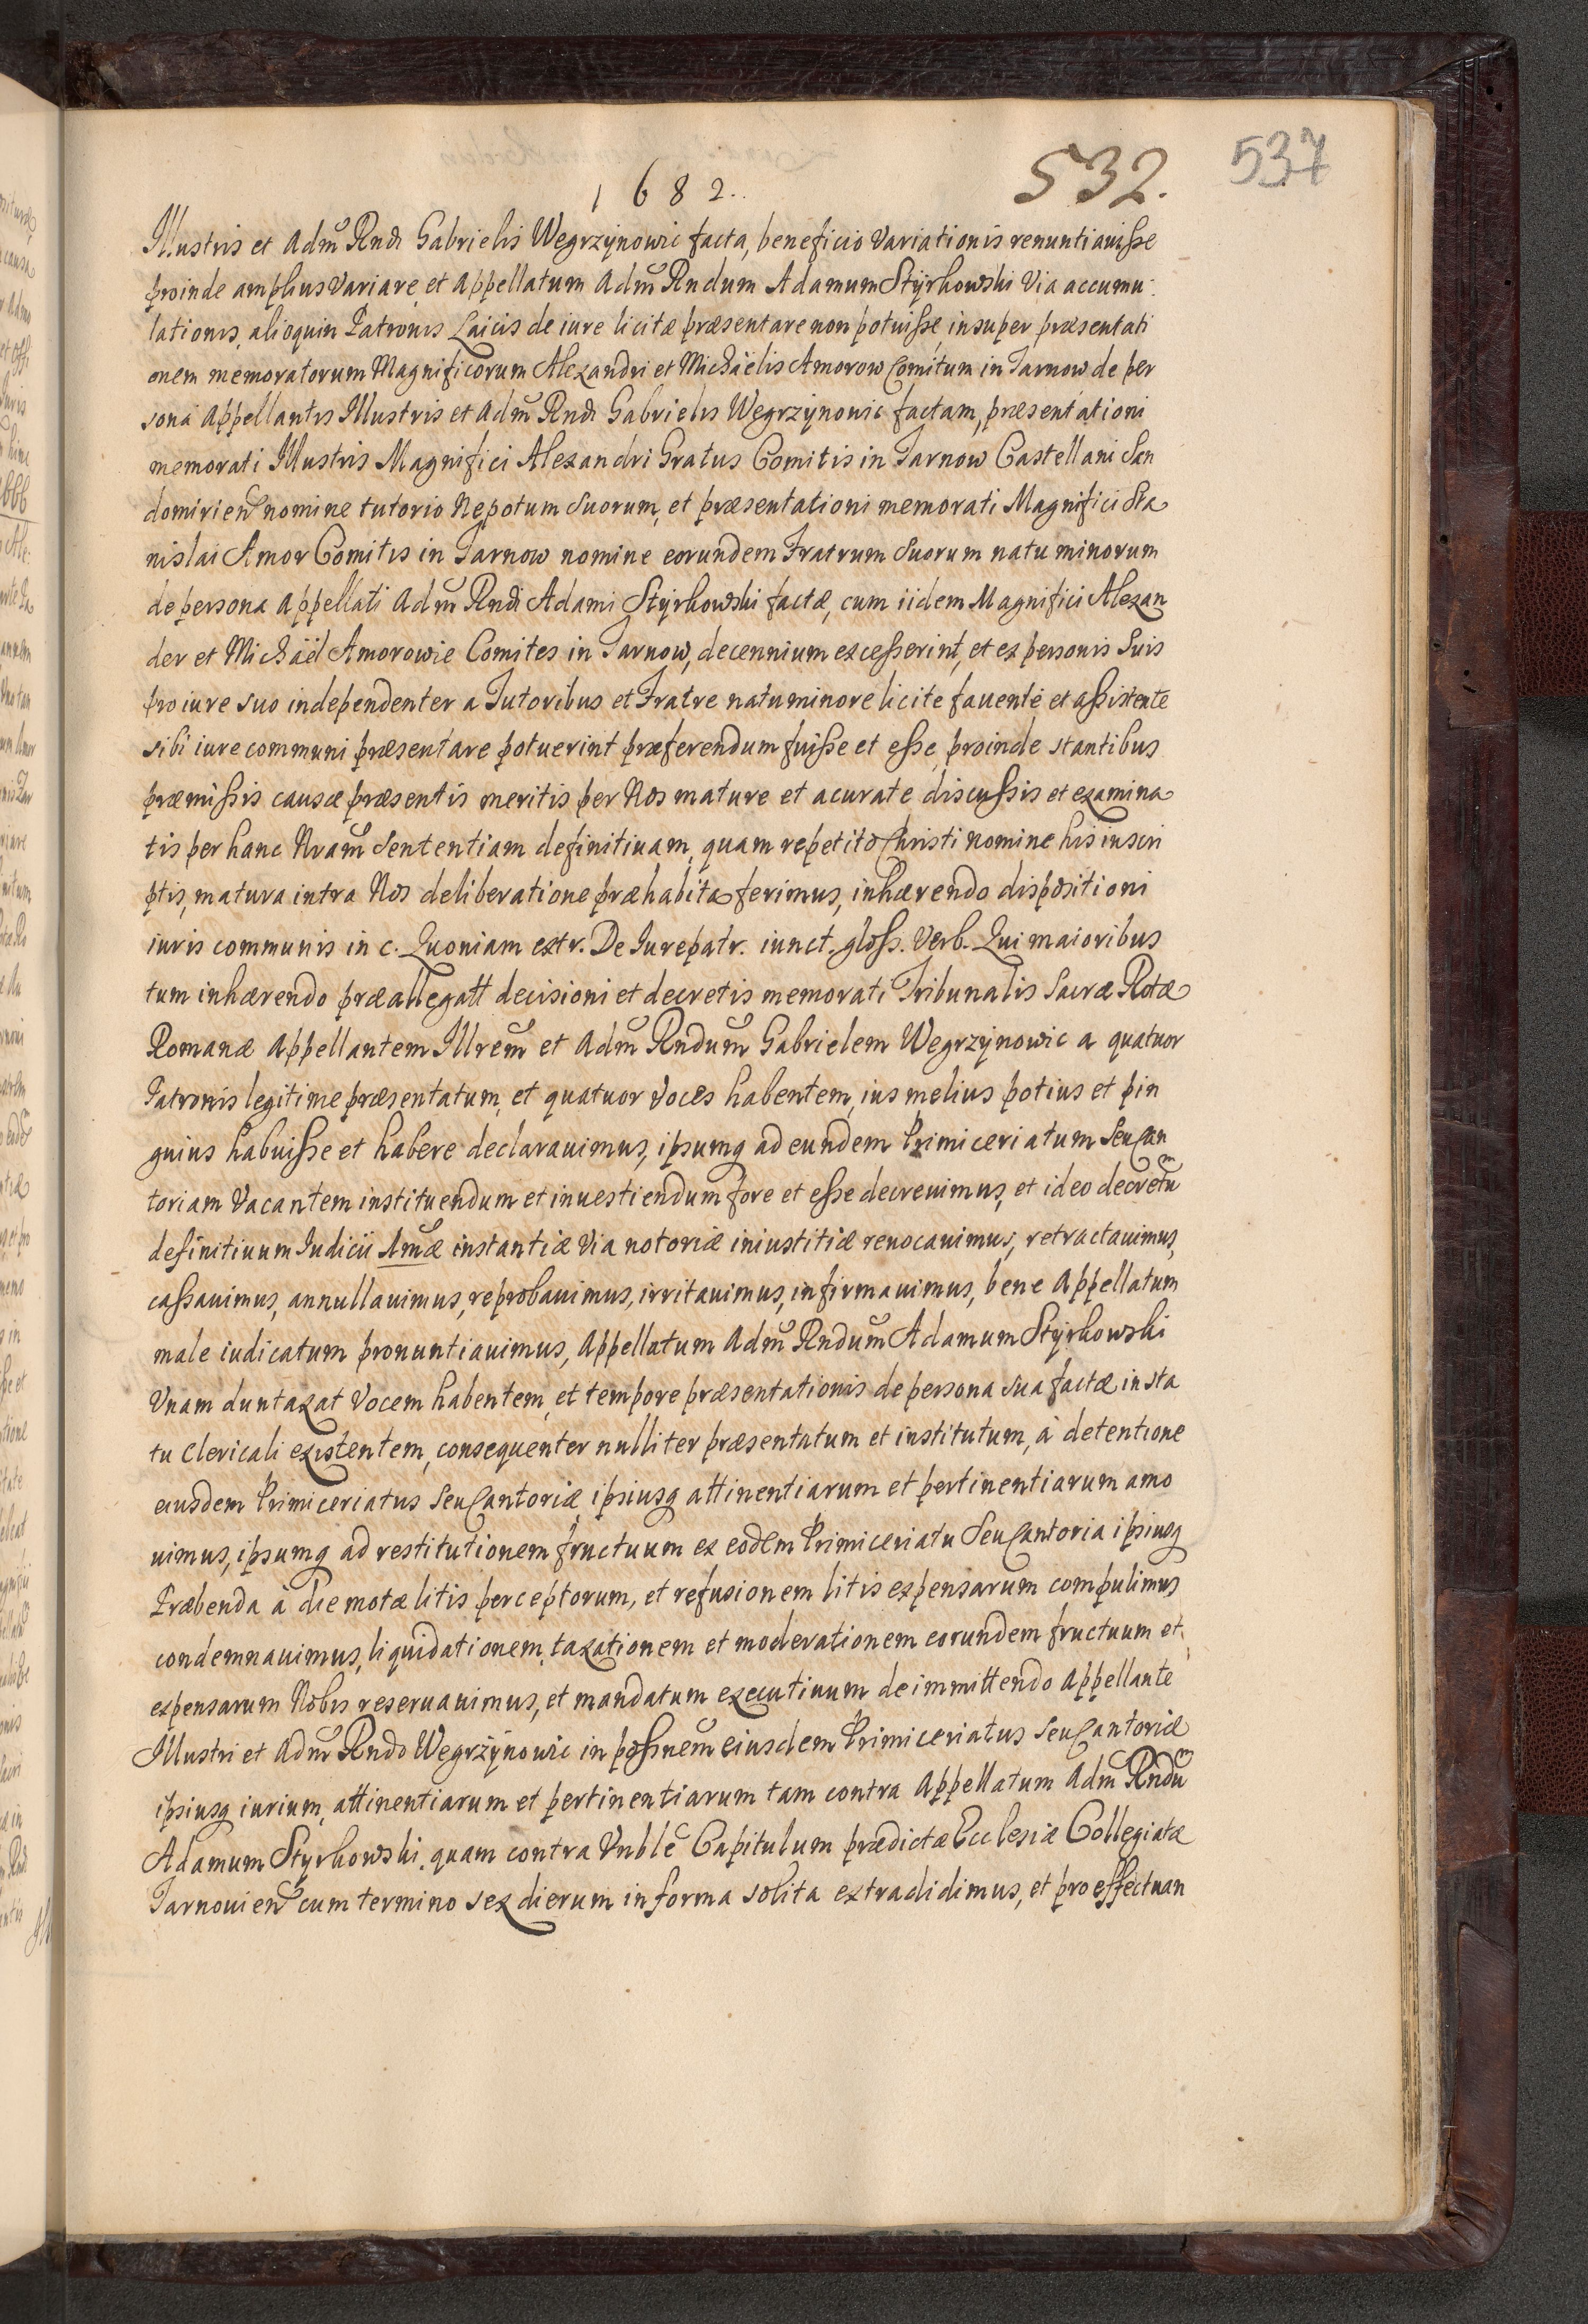 1682.
532.
537
Illustris et Adm̃ Rndi Gabrielis Wegrzynowic facta, beneficio variationis renuntiauisse
proinde amplius variare, et Appellatum Adm̃ Rndum Adamum Styrkowski via accumu-
lationis, alioquin Patronis Laicis de iure licitæ præsentare non potuisse, insuper præsentati
onem memoratorum Magnificorum Alexandri et Michäelis Amorow Comitum in Tarnow de per
sona Appellantis Illustris et Adm̃ Rndi Gabrielis Wegrzynowic factam, præsentationi
memorati Illustris Magnifici Alexandri Gratus Comitis in Tarnow Castellani San
domirien̄ nomine tutorio Nepotum suorum, et præsentationi memorati Magnifici Sta
nislai Amor Comitis in Tarnow nomine eorundem Fratrum suorum natu minorum
de persona Appellati Adm̃ Rndi Adami Styrkowski factæ, cum iidem Magnifici Alexan
der et Michäel Amorowie Comites in Tarnow, decennium excesserint, et ex personis suis
pro iure suo independenter a Tutoribus et Fratre natu minore licite fauente et assistente
sibi iure communi præsentare potuerint præferendum fuisse et esse, proinde stantibus
præmissis causæ præsentis meritis per Nos mature et acurate discussis et examina
tis per hanc Nram̃ sententiam definitiuam, quam repetito Christi nomine his inscri
ptis, matura intra Nos deliberatione præhabita ferimus, inhærendo dispositioni
iuris communis in c. Quoniam extr. De Iurepatr. iunct. gloss. verb. Qui maioribus
tum inhærendo præallegatt decisioni et decretis memorati Tribunalis Sacræ Rotæ
Romanæ Appellantem Illrem̃ et Adm̃ Rndum̃ Gabrielem Wegrzynowic a quatuor
Patronis legitime præsentatum, et quatuor voces habentem, ius melius potius et pin
guius habuisse et habere declarauimus, ipsumq ad eundem Primiceriatum seu Can
toriam vacantem instituendum et inuestiendum fore et esse decreuimus, et ideo decretũ
definitiuum Iudicii 1mæ instantiæ via notoriæ iniustitiæ reuocauimus, retractauimus,
cassauimus, annullauimus, reprobauimus, irritauimus, infirmauimus, bene Appellatum
male iudicatum pronuntiauimus, Appellatum Adm̃ Rndum̃ Adamum Styrkowski
Vnam duntaxat vocem habentem, et tempore præsentationis de persona sua factæ in sta
tu Clericali existentem, consequenter nulliter præsentatum et institutum, à detentione
eiusdem Primiceriatus seu Cantoriæ ipsiusq attinentiarum et pertinentiarum amo
uimus, ipsumq ad restitutionem fructuum ex eodem Primiceriatu seu Cantoria ipsiusq
Præbenda à die motæ litis perceptorum, et refusionem litis expensarum compulimus
condemnauimus, liquidationem, taxationem et moderationem eorundem fructuum et
expensarum Nobis reseruauimus, et mandatum executiuum de immittendo Appellante
Illustri et Adm̃ Rndo Wegrzynowic in possnem̃ eiusdem Primiceriatus seu Cantoriæ
ipsiusq iurium, attinentiarum et pertinentiarum tam contra Appellatum Adm̃ Rndũ
Adamum Styrkowski, quam contra Vnble Capitulum prædictæ Ecclesiæ Collegiatæ
Tarnouien̄ cum termino sex dierum in forma solita extradidimus, et pro effectuan